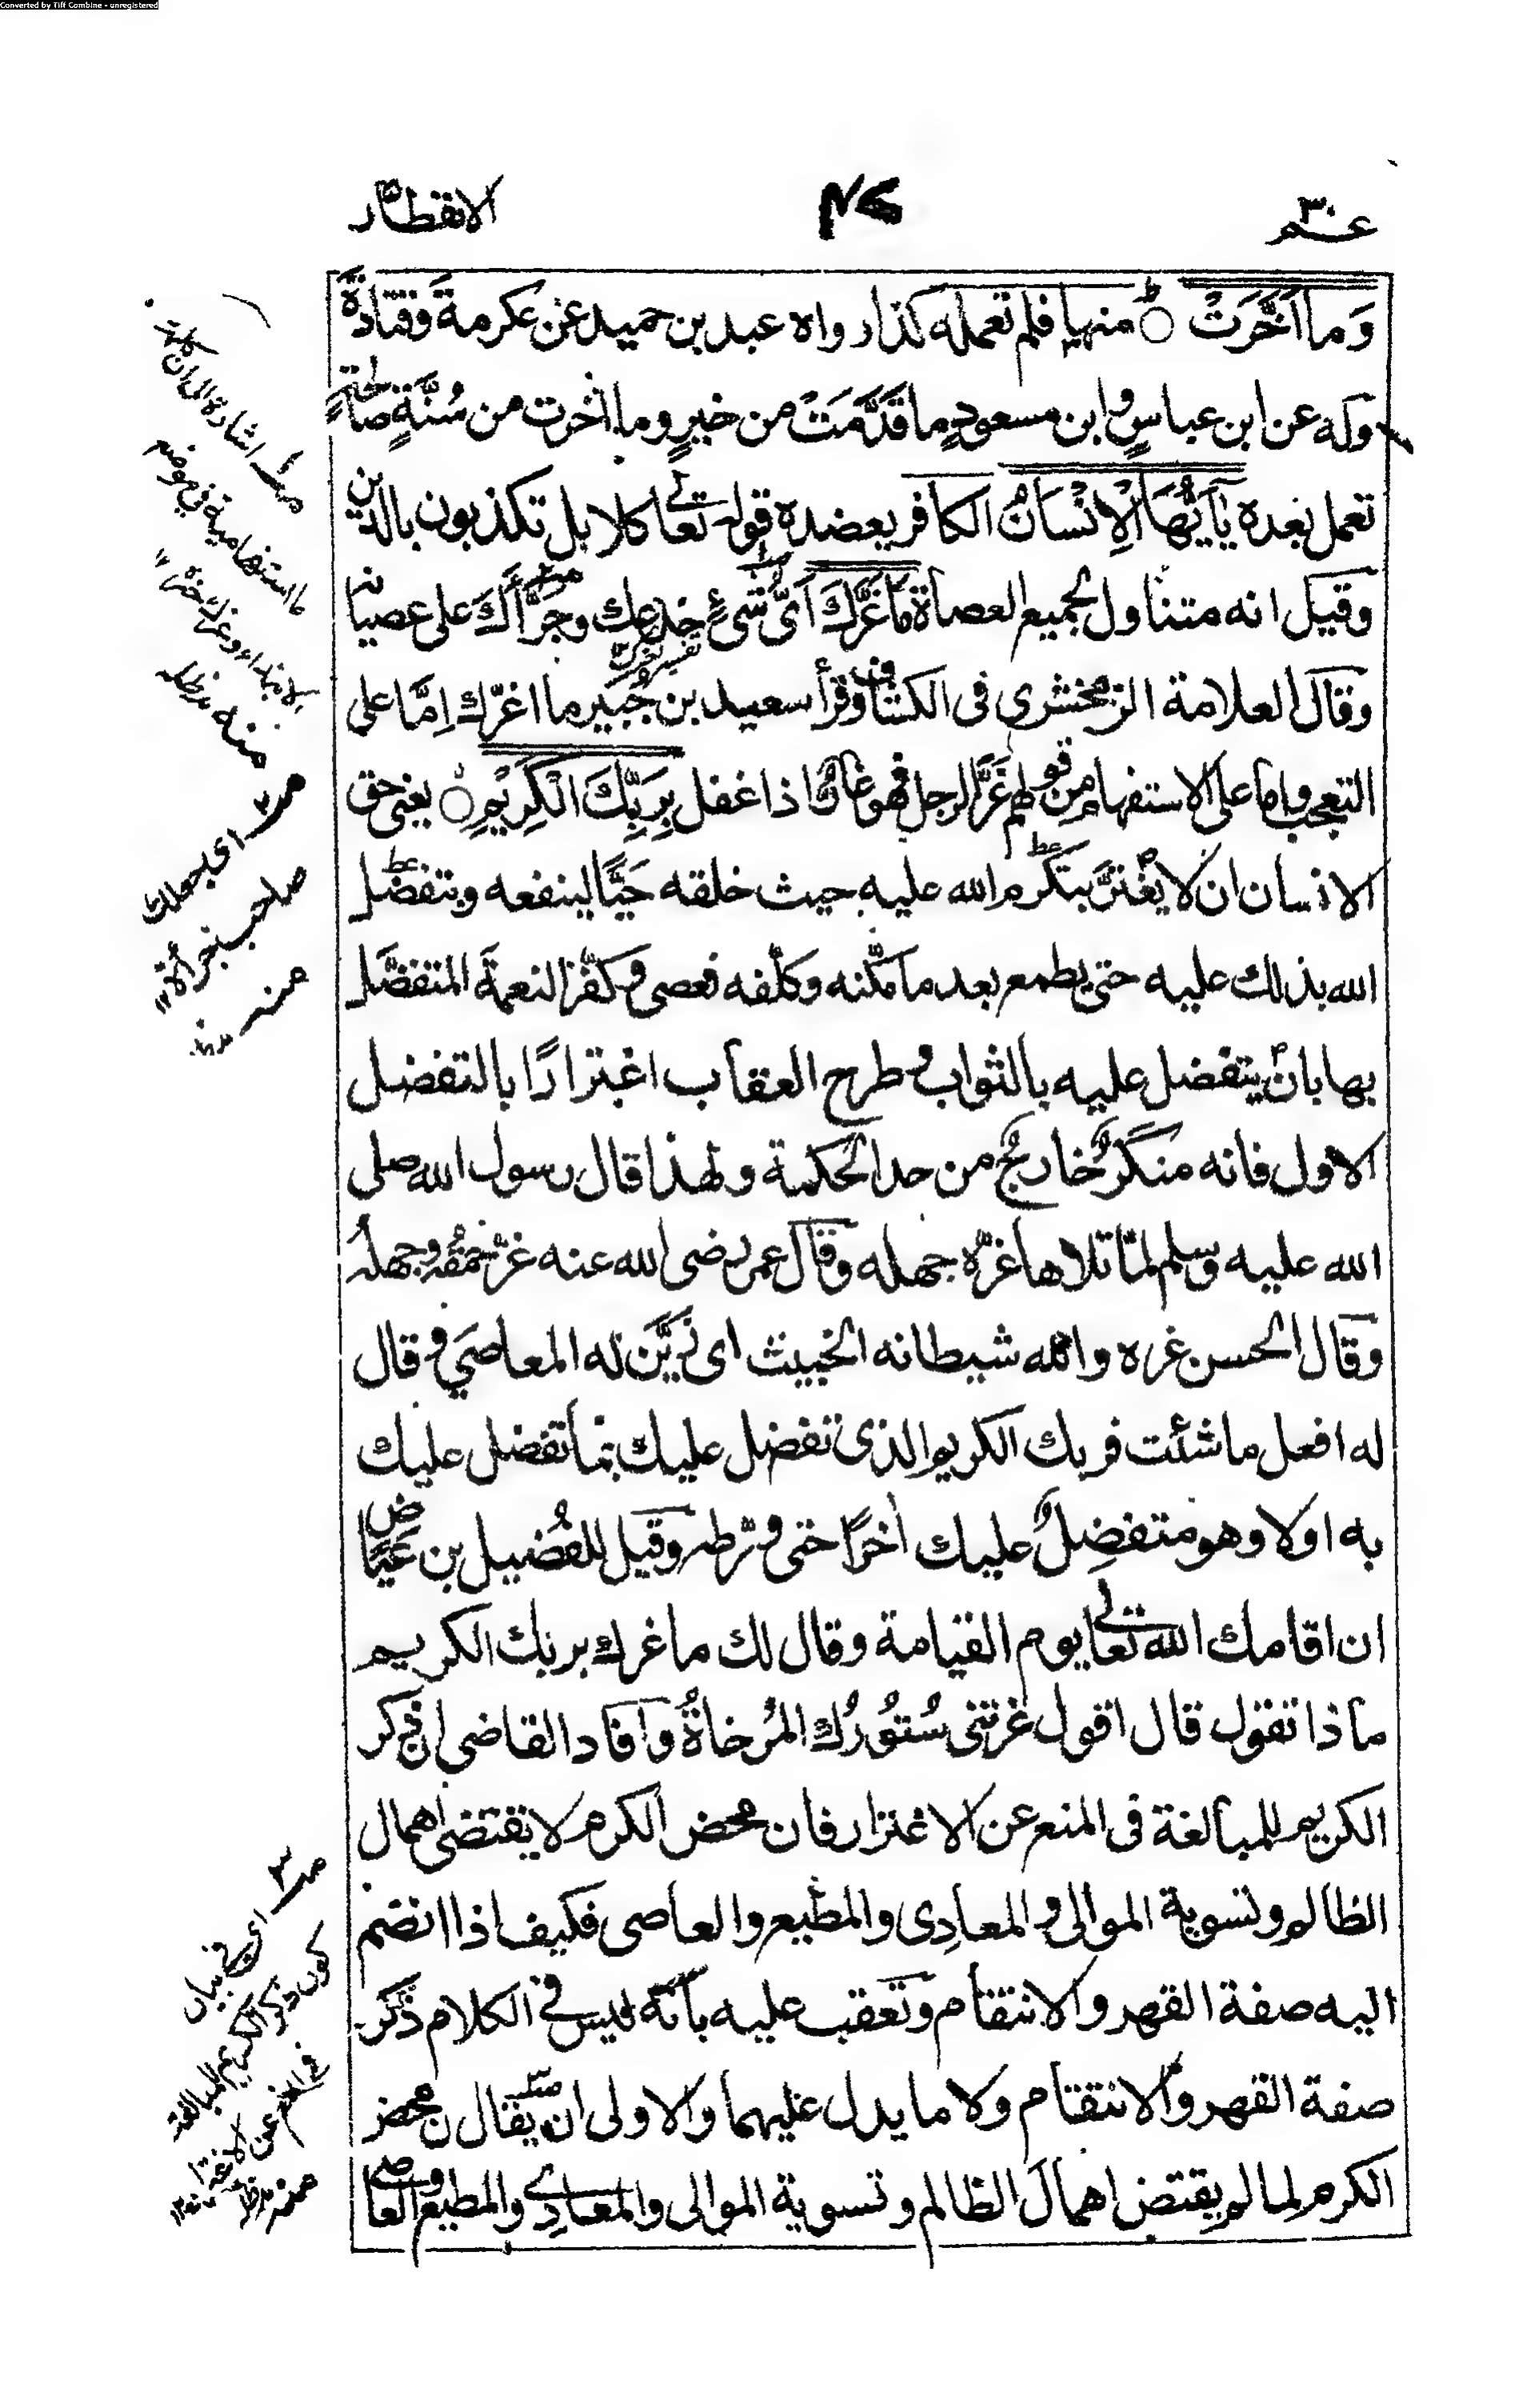 Converted by Tiff Combine - unregistered
عـم ٣٠
٤٨
الانفطار
وَما اَخَّرَتْ ○ منها فلم تعمله كذا رواه عبد بن حميد عن عكرمةَ وقتادةَ
وله عن ابن عباسٍ وابن مسعودٍ ما قَدَّمَتْ من خيرٍ وما اخرت من سُنَّةٍ صالحةٍ
تعمل بعده يٰۤاَيُّهَا الْاِنْسَانُ الكافر يعضده قوله تعالى كلا بل تكذبون بالدين
وقيل انه متناول لجميع العصاة مَا غَرَّكَ اَىُّ شىءٍ خدعك وجَرَّأَكَ على عصيانه
وقال العلامة الزمخشرى فى الكشاف وقرأ سعيد بن جُبَير ما اغرّك اِمَّا على
التعجب واما على الاستفهام من قولهم غَرَّ الرجل فهو غارٌّ اذا غفل بِرَبِّكَ الْكَرِيْمِ ○ يعنى حق
الانسان ان لا يغترَّ بتكرم الله عليه حيث خلقه حَيًّا لينفعه وبتفضل
الله بذلك عليه حتى يطمع بعد ما مكّنه وكلّفه فعصى وكفّر النعمةَ المتفضَّل
بها بان يتفضل عليه بالثواب وطرح العقاب اغترارًا بالتفضل
الاول فانه منكَرٌ خارجٌ من حد الحكمة ولهذا قال رسول الله صلى
الله عليه وسلم لمّا تلاها غرّه جهله وقال عمر رضى الله عنه غرّه حُمْقُه وجهلُه
وقال الحسن غره والله شيطانه الخبيث اى زَيَّن له المعاصَى وقال
له افعل ما شئت فربك الكريم الذى تفضل عليك بما تفضل عليك
به اولا وهو متفضِلٌ عليك اٰخرًا حتى ورّطه وقيل للفُضيل بن عَيَاض
ان اقامك الله تعالى يوم القيامة وقال لك ما غرك بربك الكريم
ماذا تقول قال اقول غرتنى سُتُورُك المُرخاةُ وافاد القاضى ان ذكر
الكريم للمبالغة فى المنع عن الاغترار فان محض الكرم لا يقتضى اهمال
الظالم وتسوية الموالى والمعادِى والمطيع والعاصى فكيف اذا انضم
اليه صفة القهر والانتقام وتعقب عليه بانّه ليس فى الكلام ذكر
صفة القهر والانتقام ولا ما يدل عليهما والاولى ان يقال ان محض
الكرم لِما لم يقتض اهمالَ الظالم وتسوية الموالى والمعادِى والمطيع والعاصى
اشارة الى ان كلمة
ما استفهامية فى موضع
الابتداء وغرك خبره
منه
ای جعلك
صاحب جرأة
منه
ای فی بيان
كون ذكر الكريم للمبالغة
فى المنع عن الاغترار
منه